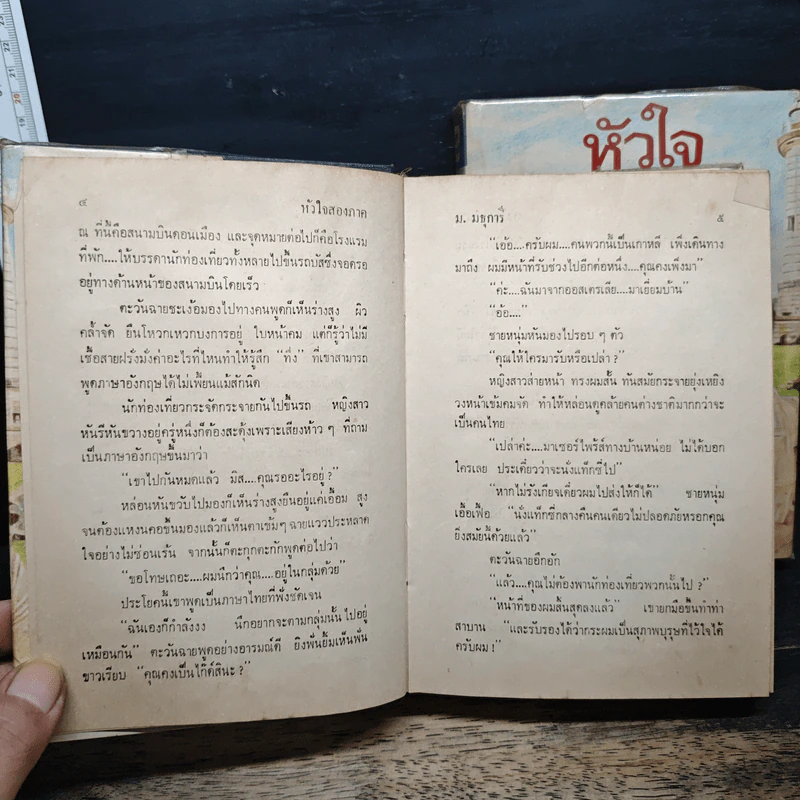 หัวใจ
๔
หัวใจสองภาค
ณ ที่นี้คือสนามบินดอนเมือง และจุดหมายต่อไปก็คือโรงแรม
ที่พัก....ให้บรรดานักท่องเที่ยวทั้งหลายไปขึ้นรถบัสซึ่งจอดรอ
อยู่ทางด้านหน้าของสนามบินโดยเร็ว
ตะวันฉายชะเง้อมองไปทางคนพูดก็เห็นร่างสูง ผิว
คล้ำจัด ยืนโหวกเหวกบงการอยู่ ใบหน้าคม แต่ก็รู้ว่าไม่มี
เชื้อสายฝรั่งมั่งค่าอะไรที่ไหนทำให้รู้สึก “ทึ่ง” ที่เขาสามารถ
พูดภาษาอังกฤษได้ไม่เพี้ยนแม้สักนิด
นักท่องเที่ยวกระจัดกระจายกันไปขึ้นรถ หญิงสาว
หันรีหันขวางอยู่ครู่หนึ่งก็ต้องสะดุ้งเพราะเสียงห้าว ๆ ที่ถาม
เป็นภาษาอังกฤษขึ้นมาว่า
“เขาไปกันหมดแล้ว มิส....คุณรออะไรอยู่ ?”
หล่อนหันขวับไปมองก็เห็นร่างสูงยืนอยู่แค่เอื้อม สูง
จนต้องแหงนคอขึ้นมองแล้วก็เห็นตาเข้มๆ ฉายแววประหลาด
ใจอย่างไม่ซ่อนเร้น จากนั้นก็ตะกุกตะกักพูดต่อไปว่า
“ขอโทษเถอะ....ผมนึกว่าคุณ....อยู่ในกลุ่มด้วย”
ประโยคนี้เขาพูดเป็นภาษาไทยที่ฟังชัดเจน
“ฉันเองก็กำลังงง นึกอยากจะตามกลุ่มนั้นไปอยู่
เหมือนกัน” ตะวันฉายพูดอย่างอารมณ์ดี ยิงฟันยิ้มเห็นฟัน
ขาวเรียบ “คุณคงเป็นไก๊ด์สินะ ?”
ม. มธุการี
๕
“เอ้อ....ครับผม....คนพวกนี้เป็นเกาหลี เพิ่งเดินทาง
มาถึง ผมมีหน้าที่รับช่วงไปอีกต่อหนึ่ง....คุณคงเพิ่งมา”
“ค่ะ....ฉันมาจากออสเตรเลีย....มาเยี่ยมบ้าน”
“อ้อ....”
ชายหนุ่มหันมองไปรอบ ๆ ตัว
“คุณให้ใครมารับหรือเปล่า ?”
หญิงสาวส่ายหน้า ทรงผมสั้น ทันสมัยกระจายยุ่งเหยิง
วงหน้าเข้มคมจัด ทำให้หล่อนดูคล้ายคนต่างชาติมากกว่าจะ
เป็นคนไทย
“เปล่าค่ะ....มาเซอร์ไพร้ส์ทางบ้านหน่อย ไม่ได้บอก
ใครเลย ประเดี๋ยวว่าจะนั่งแท็กซี่ไป”
“หากไม่รังเกียจเดี๋ยวผมไปส่งให้ก็ได้” ชายหนุ่ม
เอื้อเฟื้อ “นั่งแท็กซี่กลางคืนคนเดียวไม่ปลอดภัยหรอกคุณ
ยิ่งสมัยนี้ด้วยแล้ว”
ตะวันฉายอึกอัก
“แล้ว....คุณไม่ต้องพานักท่องเที่ยวพวกนั้นไป ?”
“หน้าที่ของผมสิ้นสุดลงแล้ว” เขายกมือขึ้นทำท่า
สาบาน “และรับรองได้ว่ากระผมเป็นสุภาพบุรุษที่ไว้ใจได้
ครับผม !”